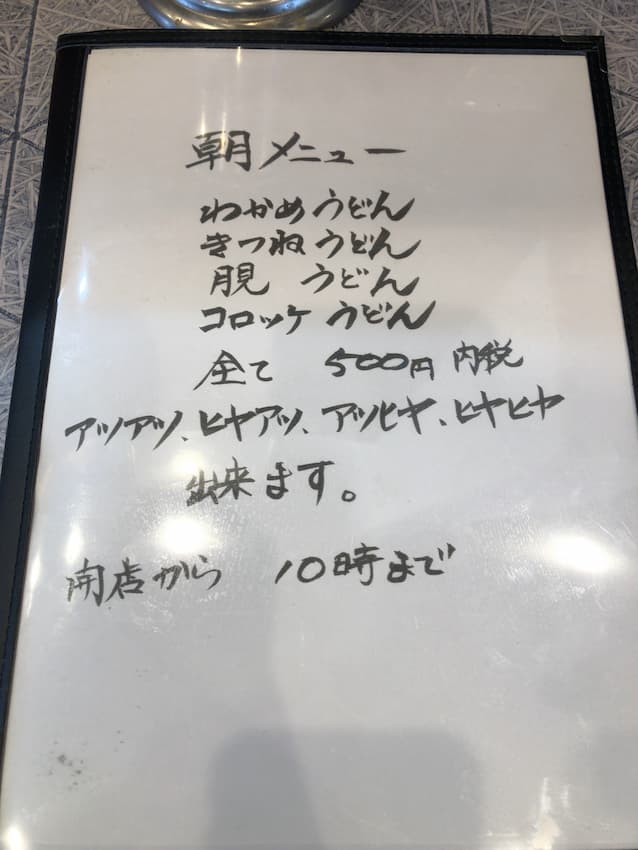 朝メニュー
わかめうどん
きつねうどん
月見 うどん
コロッケうどん
全て 500円 内税
アツアツ、ヒヤアツ、アツヒヤ、ヒヤヒヤ
出来ます。
開店から 10時まで